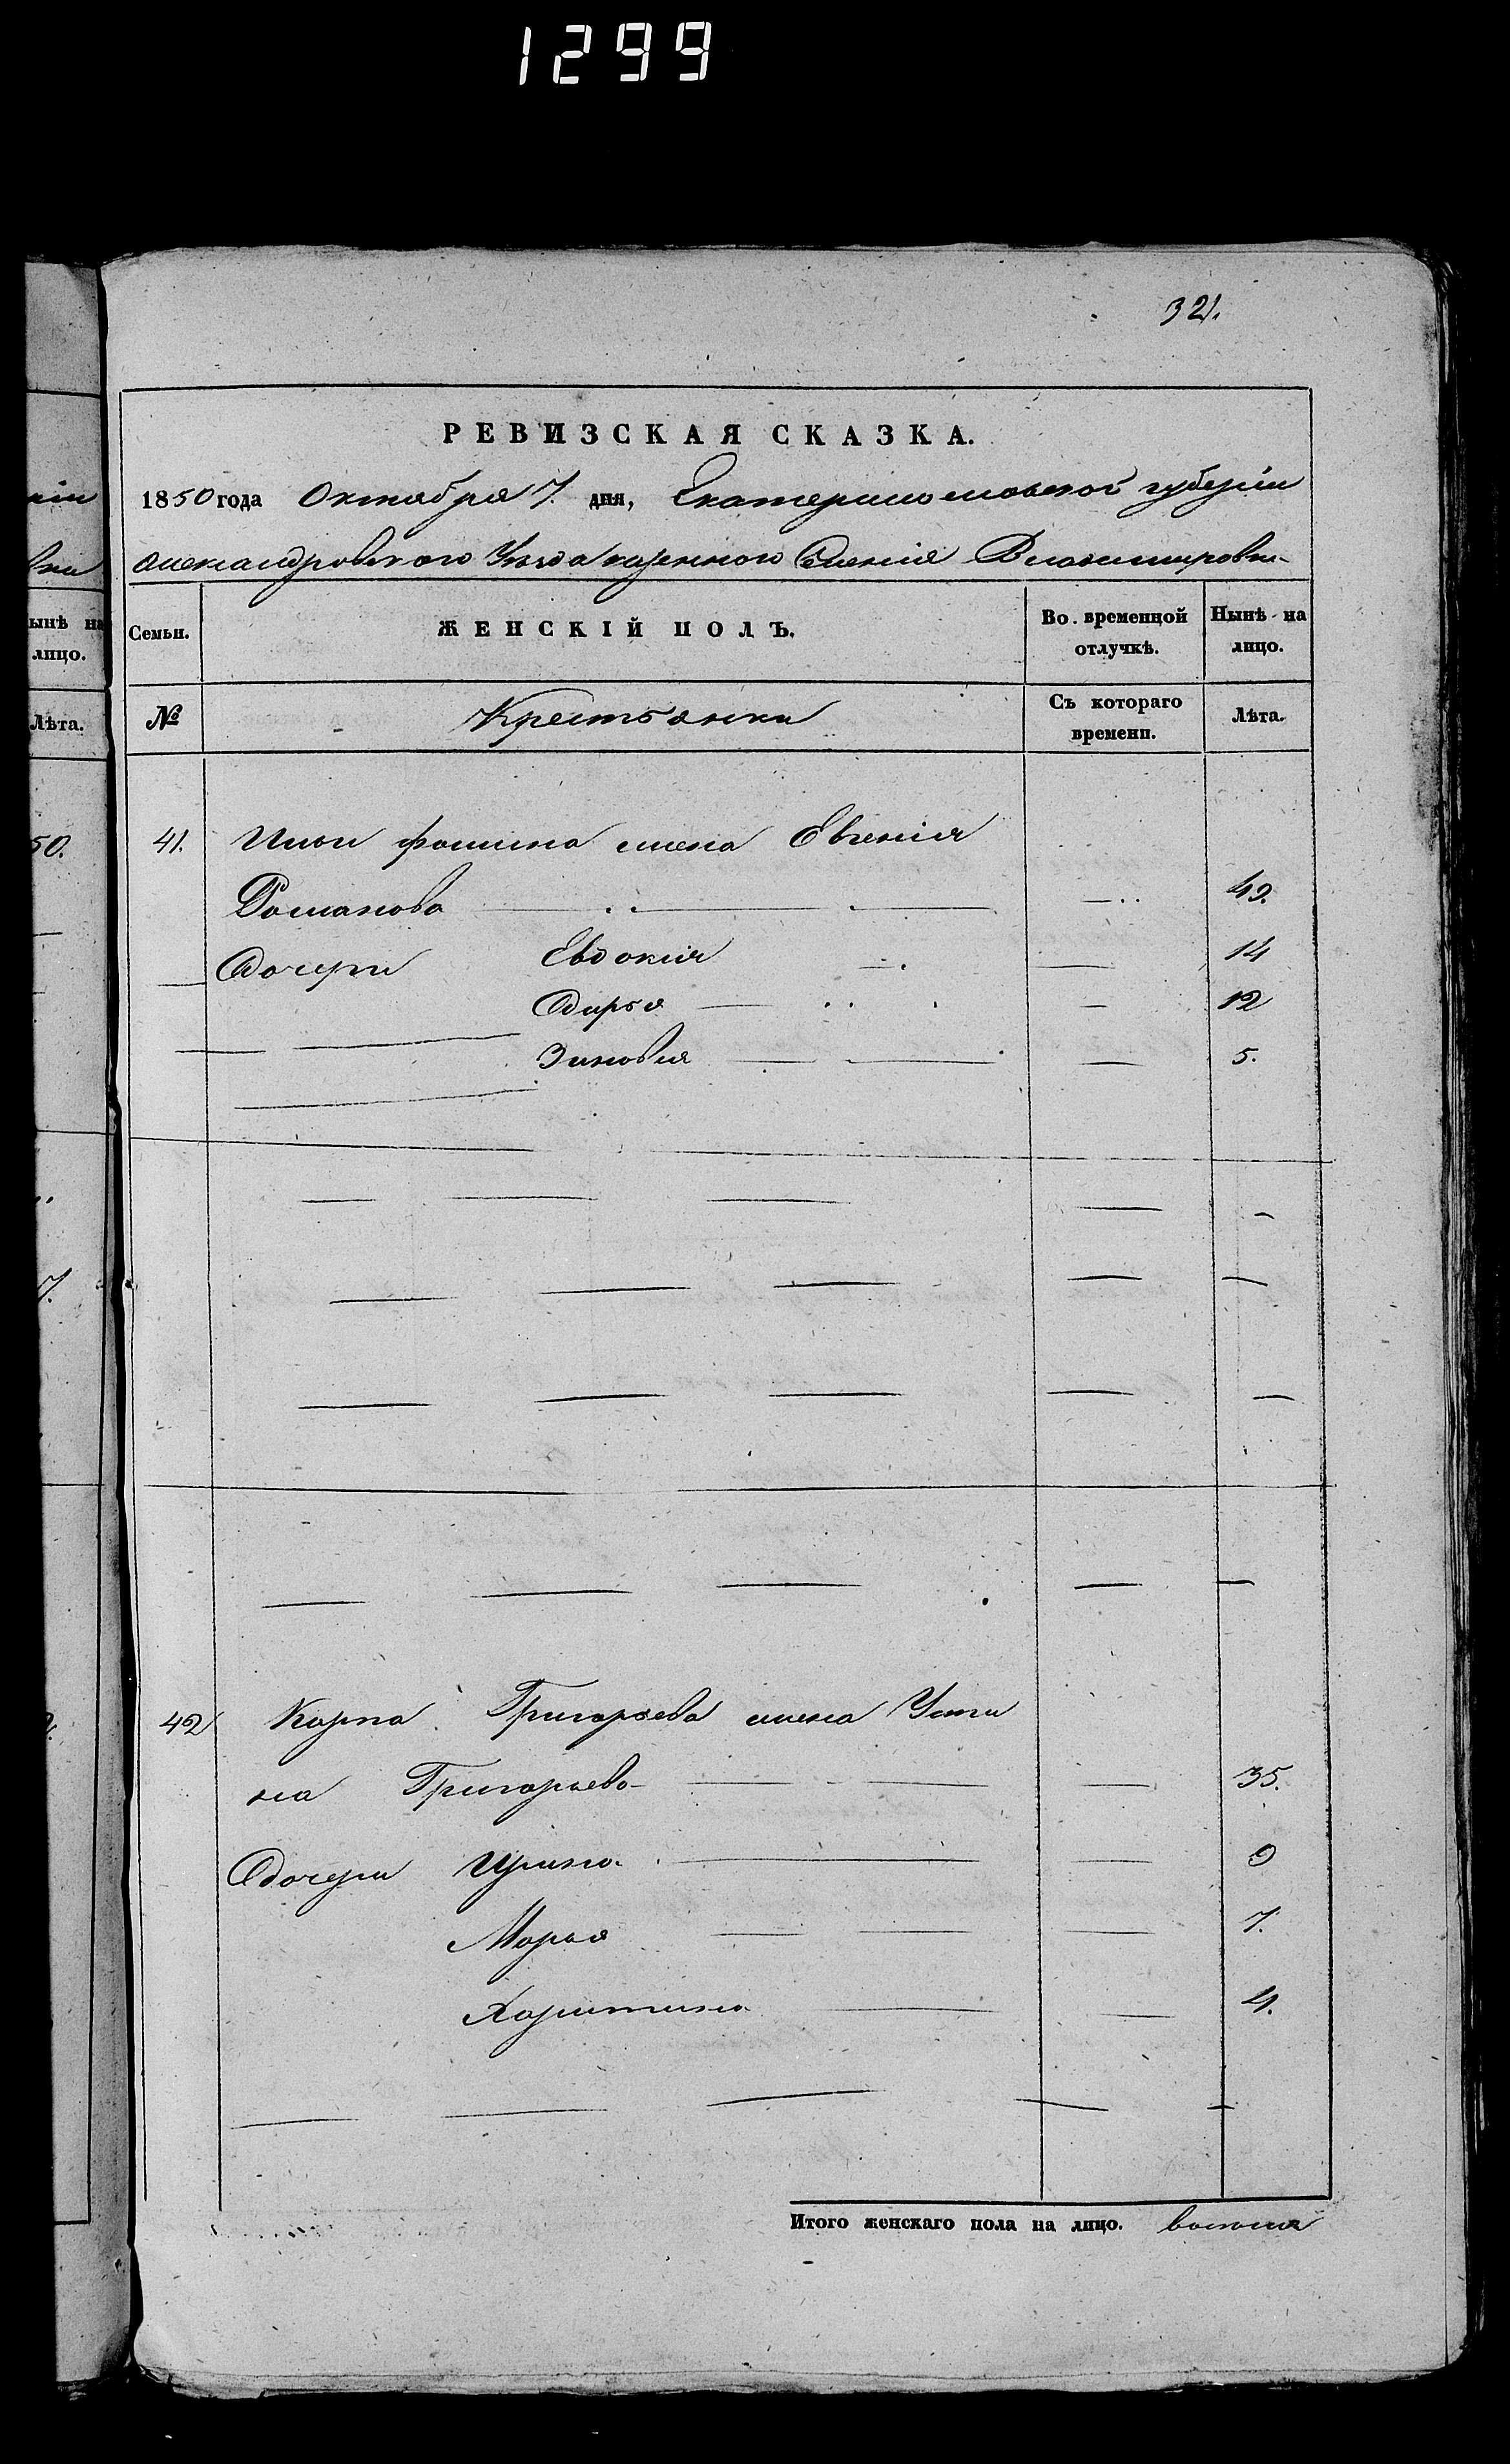 1299
321.
РЕВИЗСКАЯ СКАЗКА.
1850 года Октября 7. дня, Екатеринославской губерніи
Александровского Уѣзда казенного Селенія Владимировки
Семьи. ЖЕНСКІЙ ПОЛЪ. Во временной отлучкѣ. Нынѣ на лицо.
№ Крестьянки Съ котораго времени. Лѣта.
41. Ильи Фомина жена Евгенія
Романова 49.
Дочери Евдокія 14
Дарья 12
Зиновия 5.
42 Карпа Григорьева жена Усти
на Григорьева 35.
Дочери Ирина 9
Марья 7.
Харитина 4.
Итого женскаго пола на лицо. восемь
ріи
вки
ынѣ на
лицо.
Лѣта.
50.
7.